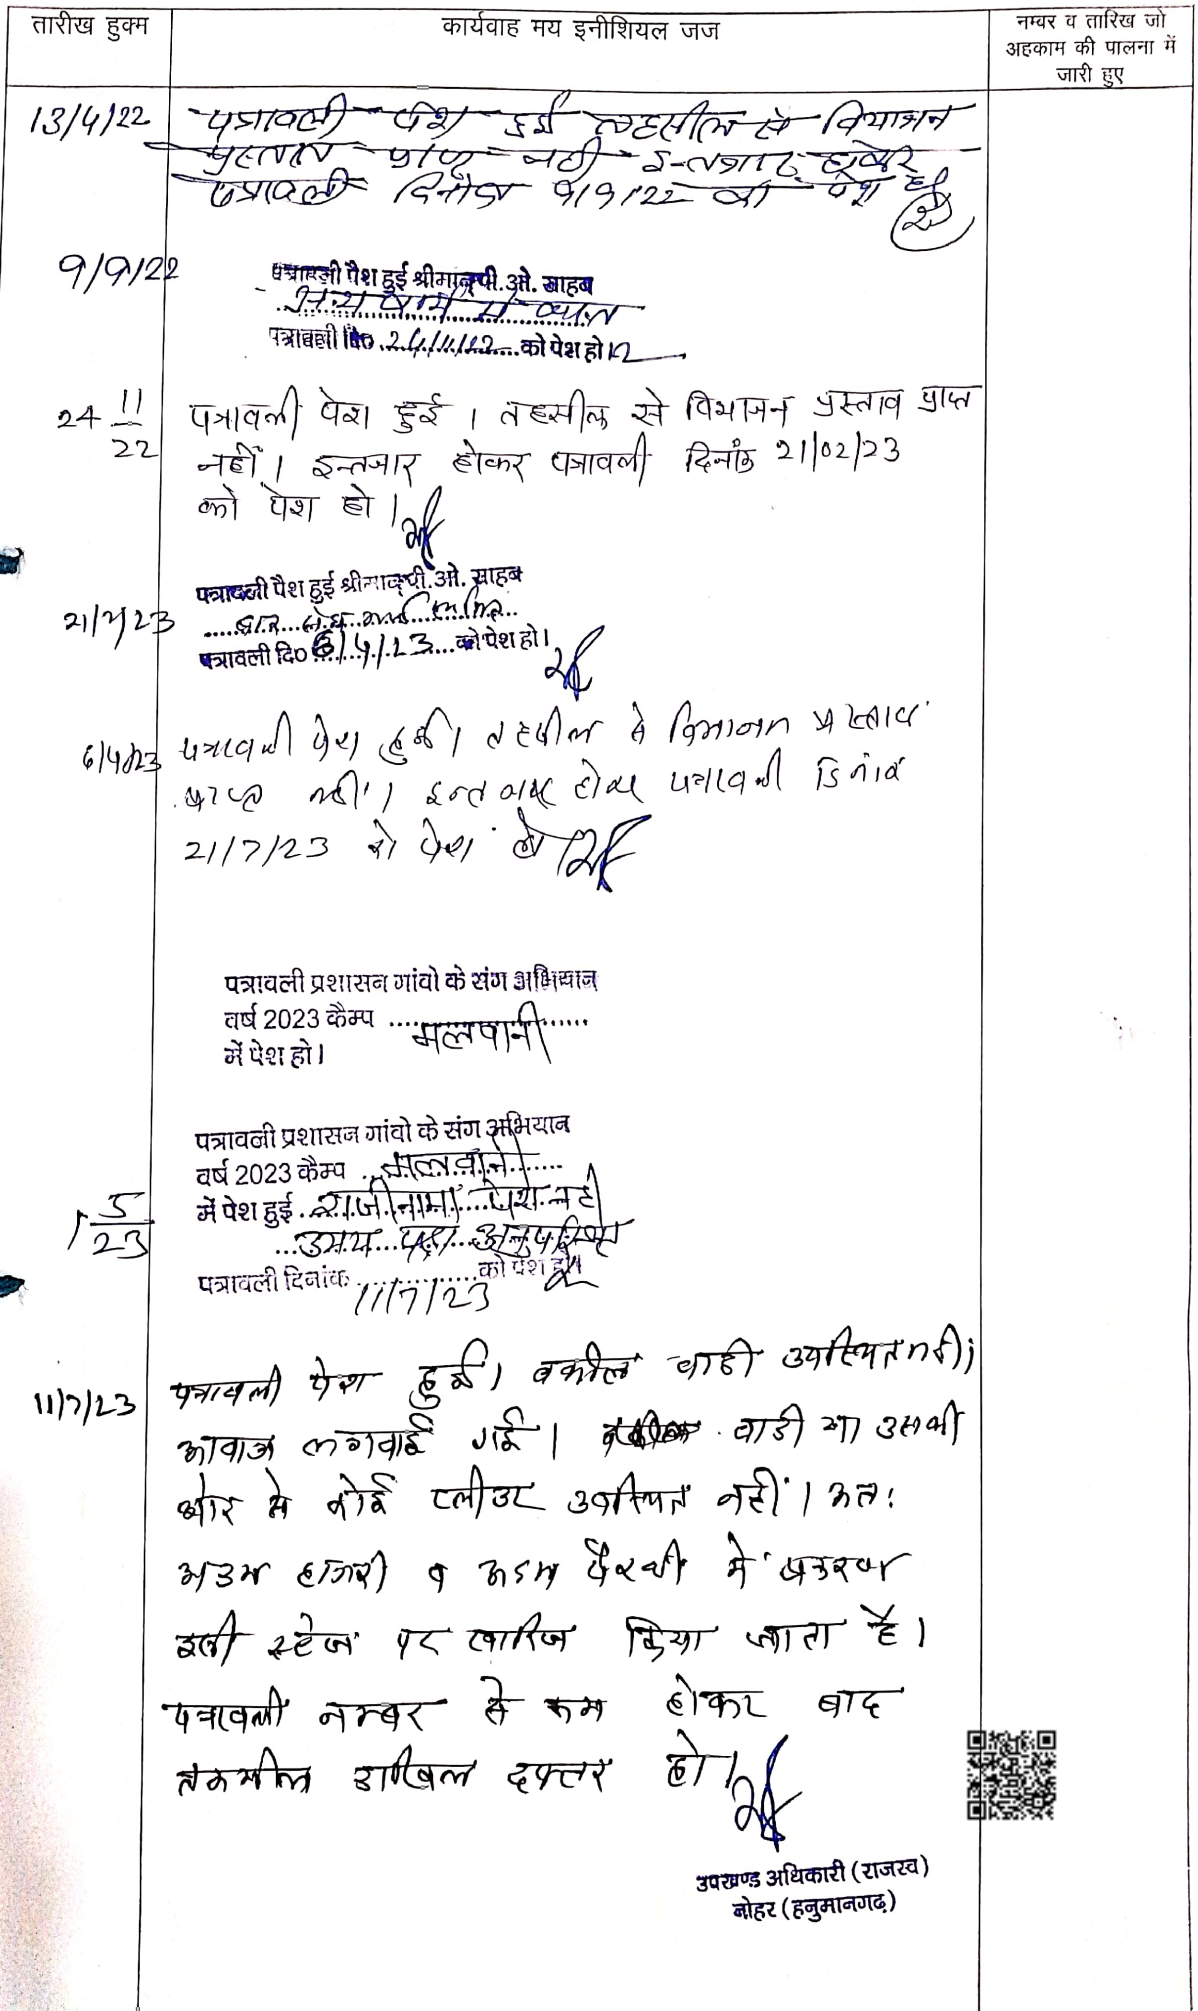 तारीख हुक्म
कार्यवाह मय इनीशियल जज
नम्बर व तारिख जो
अहकाम की पालना में
जारी हुए
13/4/22 पत्रावली पेश हुई तहसील से विभाजन
प्रस्ताव प्राप्त नही इन्तजार होकर
पत्रावली दिनांक 9/9/22 को पेश हो
9/9/22 पत्रावली पैश हुई श्रीमान् पी.ओ. साहब
अन्य कार्य में व्यस्त
पत्रावली दि० 24/11/22 को पेश हो
24 11/22 पत्रावली पेश हुई । तहसील से विभाजन प्रस्ताव प्राप्त
नहीं । इन्तजार होकर पत्रावली दिनांक 21/02/23
को पेश हो ।
पत्रावली पैश हुई श्रीमान् पी.ओ. साहब
21/2/23
पत्रावली दि० 6/4/23 को पेश हो ।
6/4/23 पत्रावली पेश हुई । तहसील से विभाजन प्रस्ताव
प्राप्त नही । इन्तजार होकर पत्रावली दिनांक
21/7/23 को पेश हो
पत्रावली प्रशासन गांवो के संग अभियान
वर्ष 2023 कैम्प मलवानी
में पेश हो ।
पत्रावली प्रशासन गांवो के संग अभियान
वर्ष 2023 कैम्प मलवानी
में पेश हुई राजीनामा पेश नही
1 5/23 उभय पक्ष अनुपस्थित
पत्रावली दिनांक 11/7/23 को पेश हो
11/7/23 पत्रावली पेश हुई । वकील वादी उपस्थित नही ।
आवाज लगवाई गई । वादी या उसकी
ओर से कोई प्लीडर उपस्थित नहीं । अतः
अदम हाजरी व अदम पैरवी में प्रकरण
इसी स्टेज पर खारिज किया जाता है ।
पत्रावली नम्बर से कम होकर बाद
तकमील दाखिल दफ्तर हो ।
उपखण्ड अधिकारी (राजस्व)
नोहर (हनुमानगढ़)